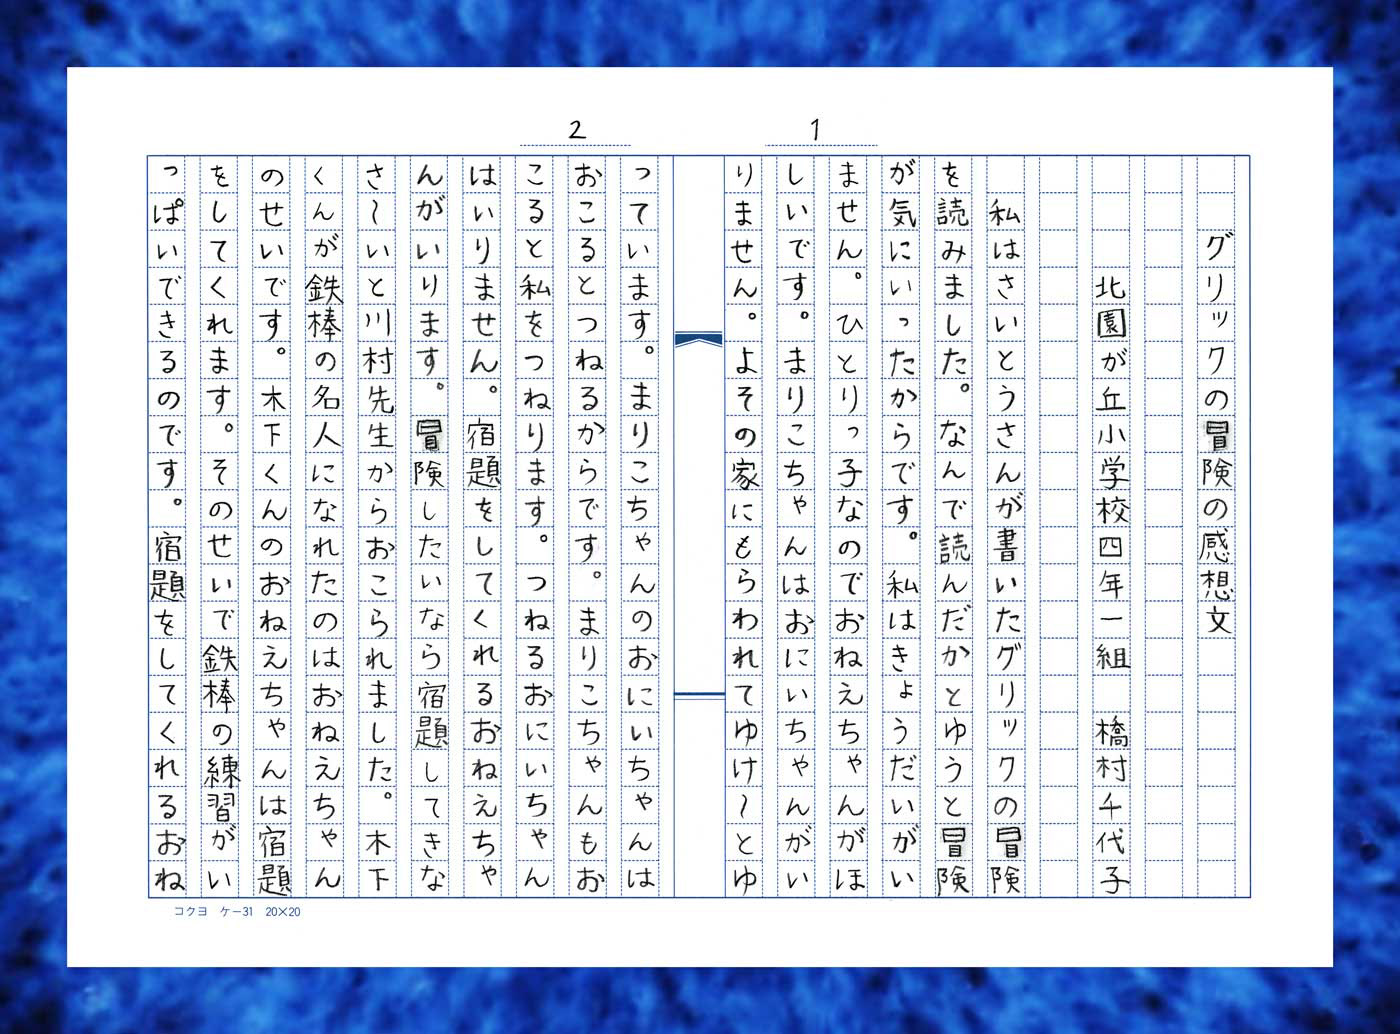 1
グリックの冒険の感想文
北園が丘小学校四年一組　橋村千代子
私はさいとうさんが書いたグリックの冒険
を読みました。なんで読んだかとゆうと冒険
が気にいったからです。私はきょうだいがい
ません。ひとりっ子なのでおねえちゃんがほ
しいです。まりこちゃんはおにいちゃんがい
りません。よその家にもらわれてゆけ〜とゆ
2
っています。まりこちゃんのおにいちゃんは
おこるとつねるからです。まりこちゃんもお
こると私をつねります。つねるおにいちゃん
はいりません。宿題をしてくれるおねえちゃ
んがいります。冒険したいなら宿題してきな
さ〜いと川村先生からおこられました。木下
くんが鉄棒の名人になれたのはおねえちゃん
のせいです。木下くんのおねえちゃんは宿題
をしてくれます。そのせいで鉄棒の練習がい
っぱいできるのです。宿題をしてくれるおね
コクヨ　ケー31　20×20